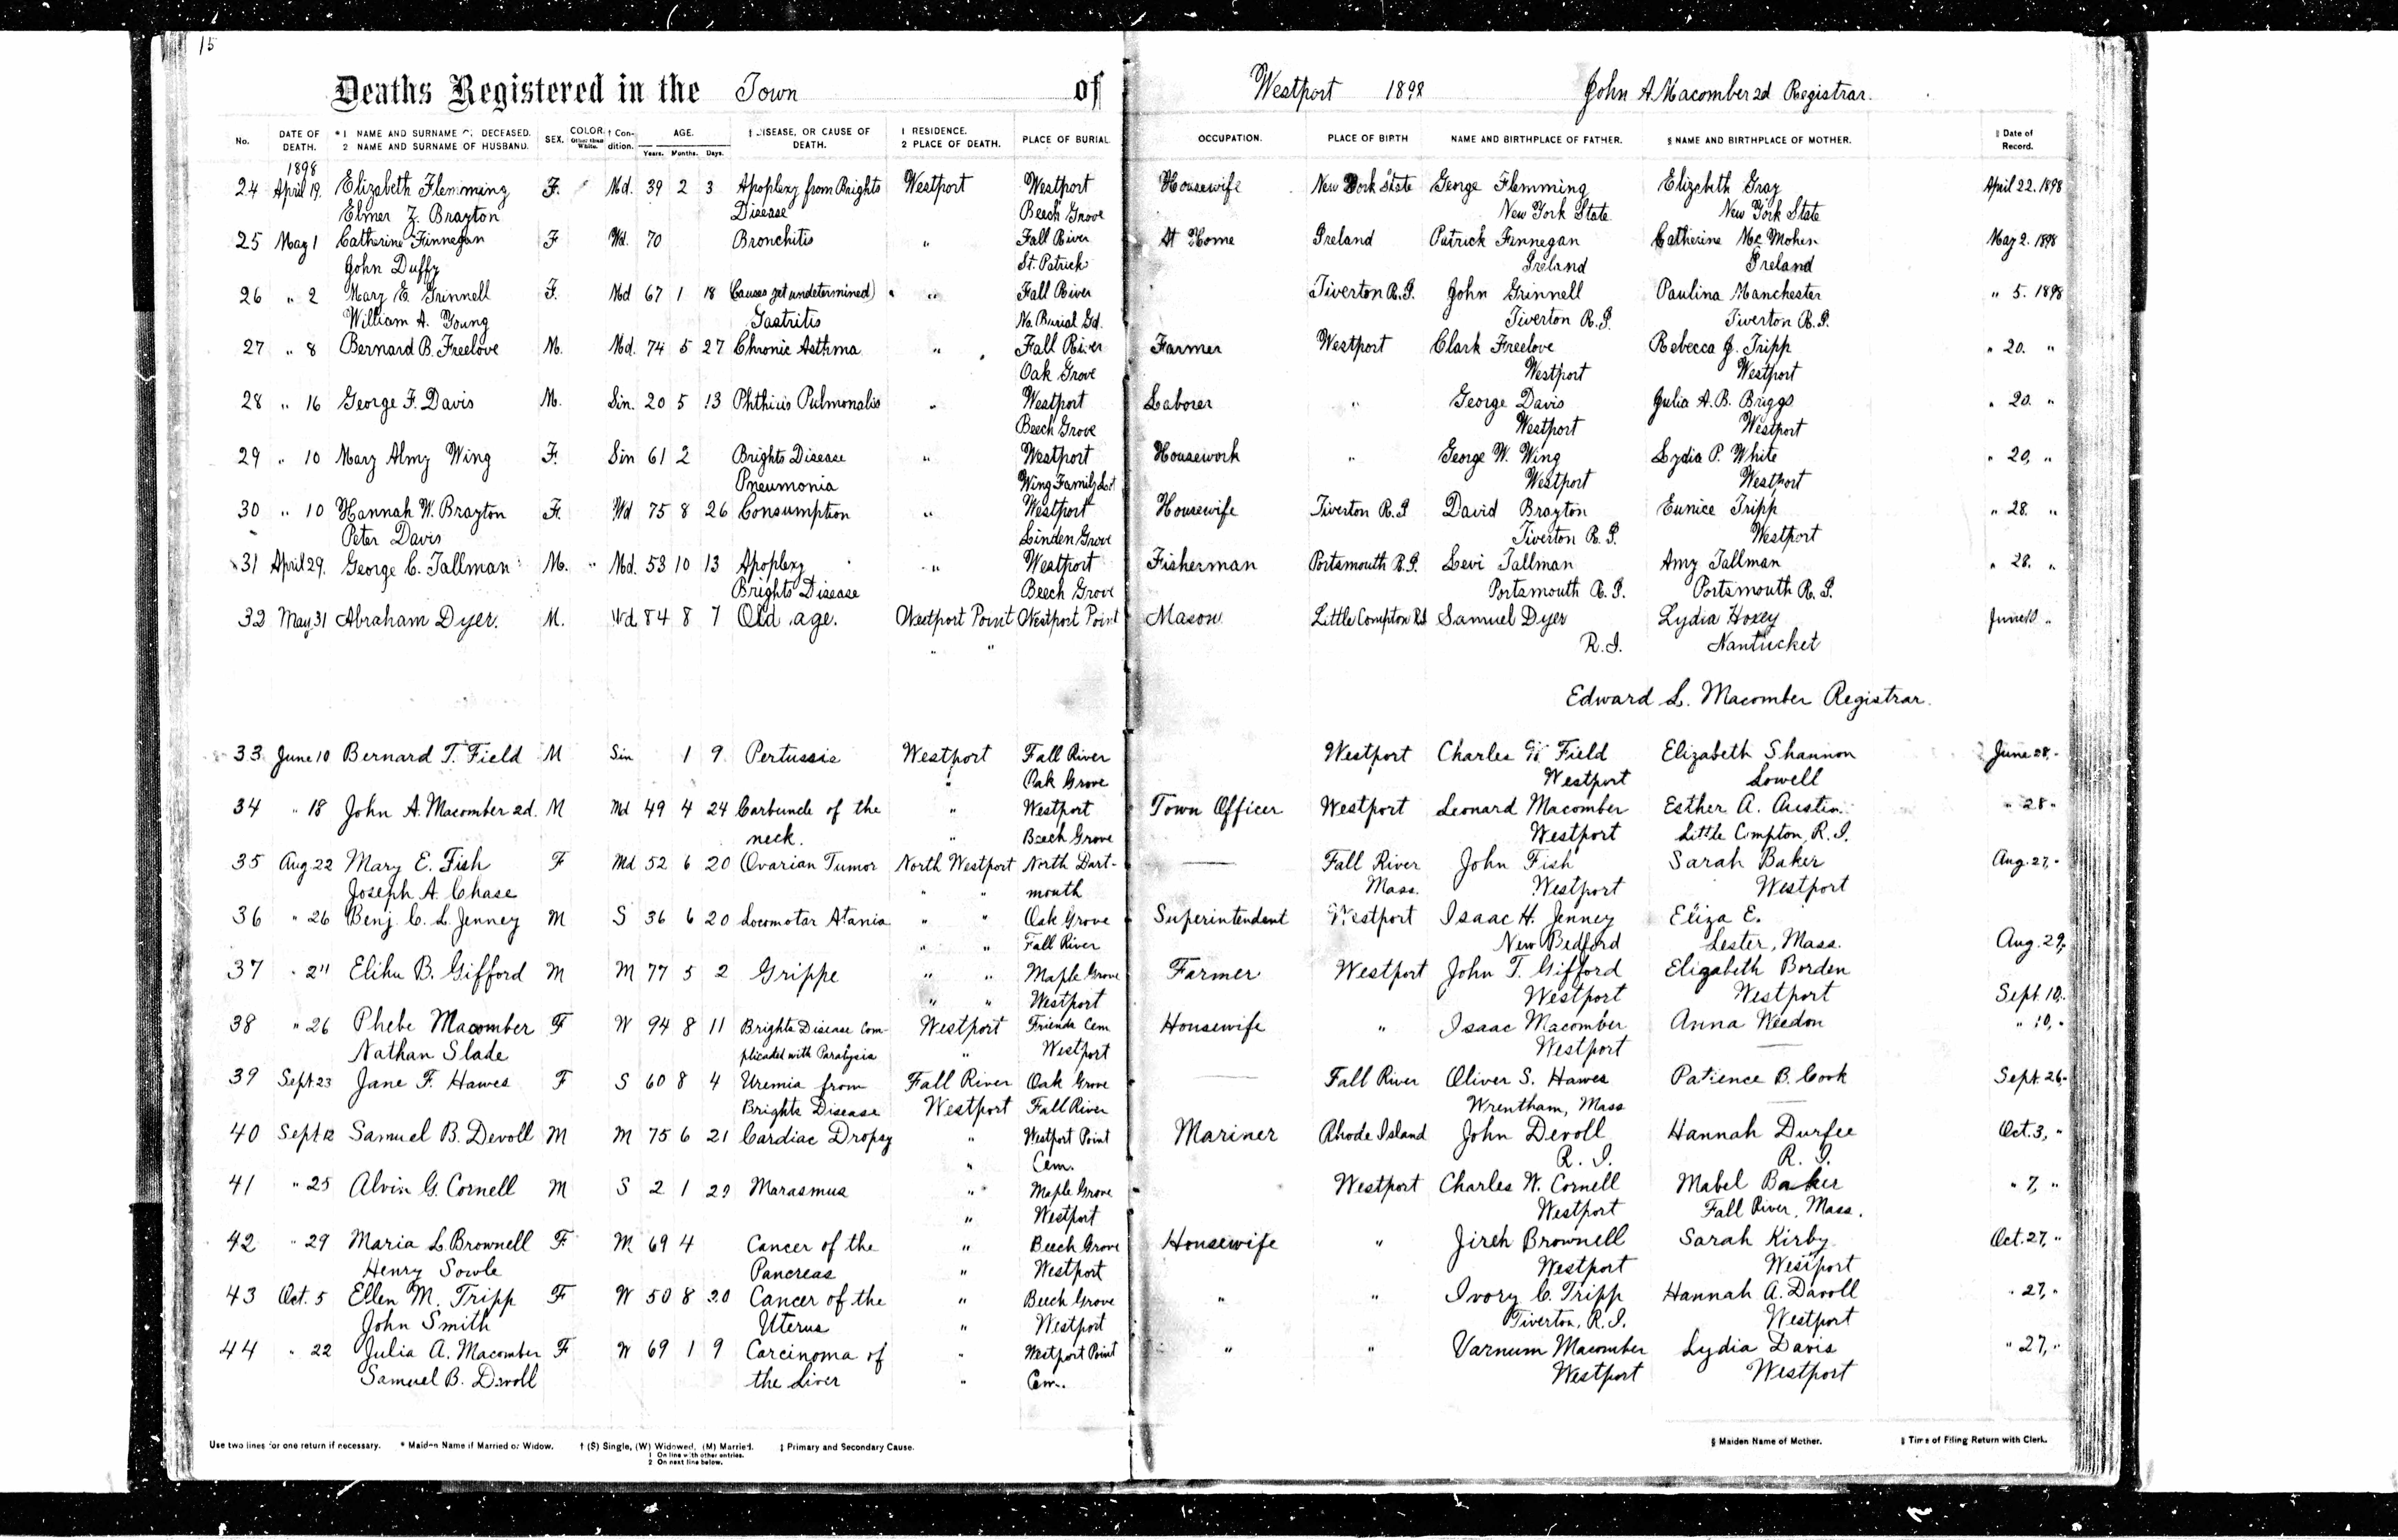 15
Deaths Registered in the Town of Westport 1898 John A Macomber 2d Registrar.
No. DATE OF DEATH. *1 NAME AND SURNAME OF DECEASED. 2 NAME AND SURNAME OF HUSBAND. SEX. COLOR. Other than White. † Condition. AGE. Years. Months. Days. ‡ DISEASE, OR CAUSE OF DEATH. 1 RESIDENCE. 2 PLACE OF DEATH. PLACE OF BURIAL OCCUPATION. PLACE OF BIRTH NAME AND BIRTHPLACE OF FATHER. § NAME AND BIRTHPLACE OF MOTHER. ‖ Date of Record.
1898
24 April 19. Elizabeth Flemming F. Md. 39 2 3 Apoplexy from Brights Westport Westport Housewife New York State George Flemming Elizebeth Gray April 22. 1898
Elmer Z. Brayton Disease Beech Grove New York State New York State
25 May 1 Catherine Finnegan F Wd. 70 Bronchitis " Fall River At Home Ireland Patrick Finnegan Catherine Mc Mohen May 2. 1898
John Duffy St. Patrick Ireland Ireland
26 " 2 Mary E. Grinnell F. Md 67 1 18 Causes yet undetermined) " Fall River Tiverton R.I. John Grinnell Paulina Manchester " 5. 1898
William A. Young Gastritis No. Burial Gd. Tiverton R.I. Tiverton R.I.
27 " 8 Bernard B. Freelove M. Md. 74 5 27 Chronic Asthma " Fall River Farmer Westport Clark Freelove Rebecca J. Tripp " 20. "
Oak Grove Westport Westport
28 " 16 George F. Davis M. Sin. 20 5 13 Phthicis Pulmonalis " Westport Laborer " George Davis Julia A. B. Briggs " 20. "
Beech Grove Westport Westport
29 " 10 Mary Almy Wing F. Sin 61 2 Brights Disease " Westport Housework " George W. Wing Lydia P. White " 20, "
Pneumonia Wing Family Lot Westport Westport
30 " 10 Hannah W. Brayton F. Wd 75 8 26 Consumption " Westport Housewife Tiverton R.I David Brayton Eunice Tripp " 28. "
Peter Davis Linden Grove Tiverton R.I. Westport
31 April 29. George C. Tallman M. " Md. 53 10 13 Apoplexy " Westport Fisherman Portsmouth R.I. Levi Tallman Amy Tallman " 28. "
Brights Disease Beech Grove Portsmouth R.I. Portsmouth R.I.
32 May 31 Abraham Dyer. M. Wd 84 8 7 Old age. Westport Point Westport Point Mason Little Compton RI Samuel Dyer Lydia Hoxey June 10 "
" " R.I. Nantucket
Edward L. Macomber Registrar.
33 June 10 Bernard T. Field M Sin 1 9 Pertussis Westport Fall River Westport Charles W. Field Elizabeth Shannon June 28, "
" Oak Grove Westport Lowell
34 " 18 John A. Macomber 2d. M Md 49 4 24 Carbuncle of the " Westport Town Officer Westport Leonard Macomber Esther A. Austin " 28 "
neck. " Beech Grove Westport Little Compton, R.I.
35 Aug 22 Mary E. Fish F Md 52 6 20 Ovarian Tumor North Westport North Dart- — Fall River John Fish Sarah Baker Aug. 27, "
Joseph A. Chase " " mouth Mass. Westport Westport
36 " 26 Benj. C. L. Jenney M S 36 6 20 Locomotar Atania " " Oak Grove Superintendent Westport Isaac H. Jenney Eliza E.
" " Fall River New Bedford Lester, Mass. Aug. 29, "
37 " 2" Elihu B. Gifford M M 77 5 2 Grippe " " Maple Grove Farmer Westport John T. Gifford Elizabeth Borden
" " Westport Westport Westport Sept. 10, "
38 " 26 Phebe Macomber F W 94 8 11 Brights Disease Com- Westport Friends Cem Housewife " Isaac Macomber Anna Weedon " 10, "
Nathan Slade plicaded with Paralysis " Westport Westport —
39 Sept 23 Jane F. Hawes F S 60 8 4 Uremia from Fall River Oak Grove — Fall River Oliver S. Hawes Patience B. Cook Sept. 26, "
Brights Disease Westport Fall River Wrentham, Mass —
40 Sept 12 Samuel B. Devoll M M 75 6 21 Cardiac Dropsy " Westport Point Mariner Rhode Island John Devoll Hannah Durfee Oct. 3, "
" Cem. R.I. R.I.
41 " 25 Alvin G. Cornell M S 2 1 29 Marasmus " Maple Grove Westport Charles W. Cornell Mabel Baker " 7, "
" Westport Westport Fall River, Mass.
42 " 29 Maria L. Brownell F M 69 4 Cancer of the " Beech Grove Housewife " Jireh Brownell Sarah Kirby Oct. 27, "
Henry Sowle Pancreas " Westport Westport Westport
43 Oct. 5 Ellen M. Tripp F W 50 8 20 Cancer of the " Beech Grove " " Ivory C. Tripp Hannah A. Davoll " 27, "
John Smith Uterus " Westport Tiverton, R.I. Westport
44 " 22 Julia A. Macomber F W 69 1 9 Carcinoma of " Westport Point " " Varnum Macomber Lydia Davis " 27, "
Samuel B. Devoll the Liver " Cem. Westport Westport
Use two lines for one return if necessary. * Maiden Name if Married or Widow. † (S) Single, (W) Widowed, (M) Married. ‡ Primary and Secondary Cause. § Maiden Name of Mother. ‖ Time of Filing Return with Clerk.
1 On line with other entries.
2 On next line below.